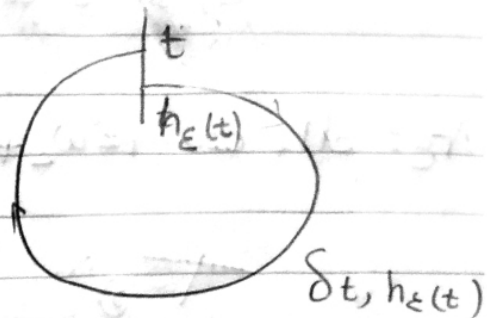 t
h_ε(t)
δt, h_ε(t)